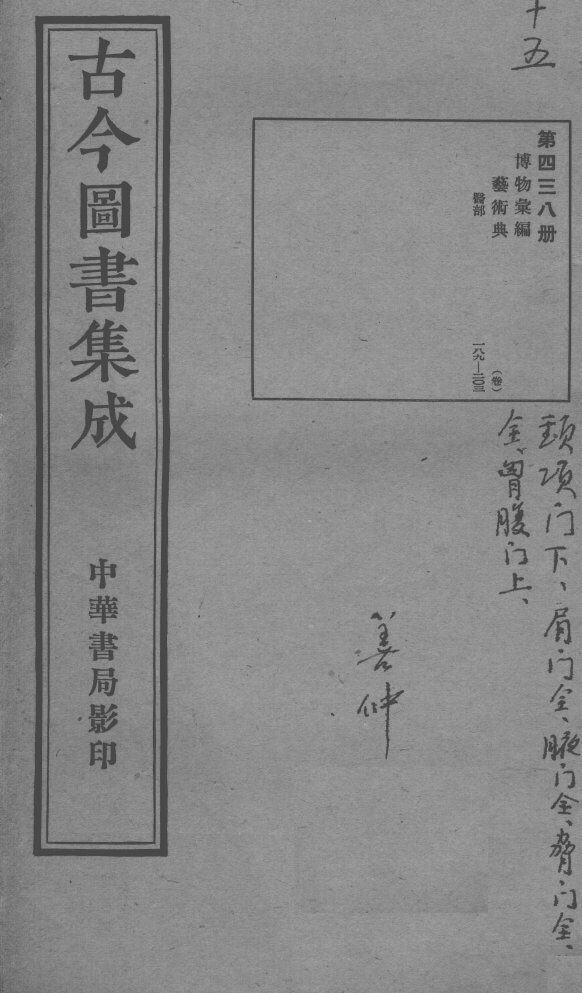 十五
第四三八册
博物彙編
藝術典
醫部
(卷)
一八九—二〇三
頸項门下、肩门全、腋门全、脅门全、
全、胷腹门上、
善仲
古今圖書集成
中華書局影印